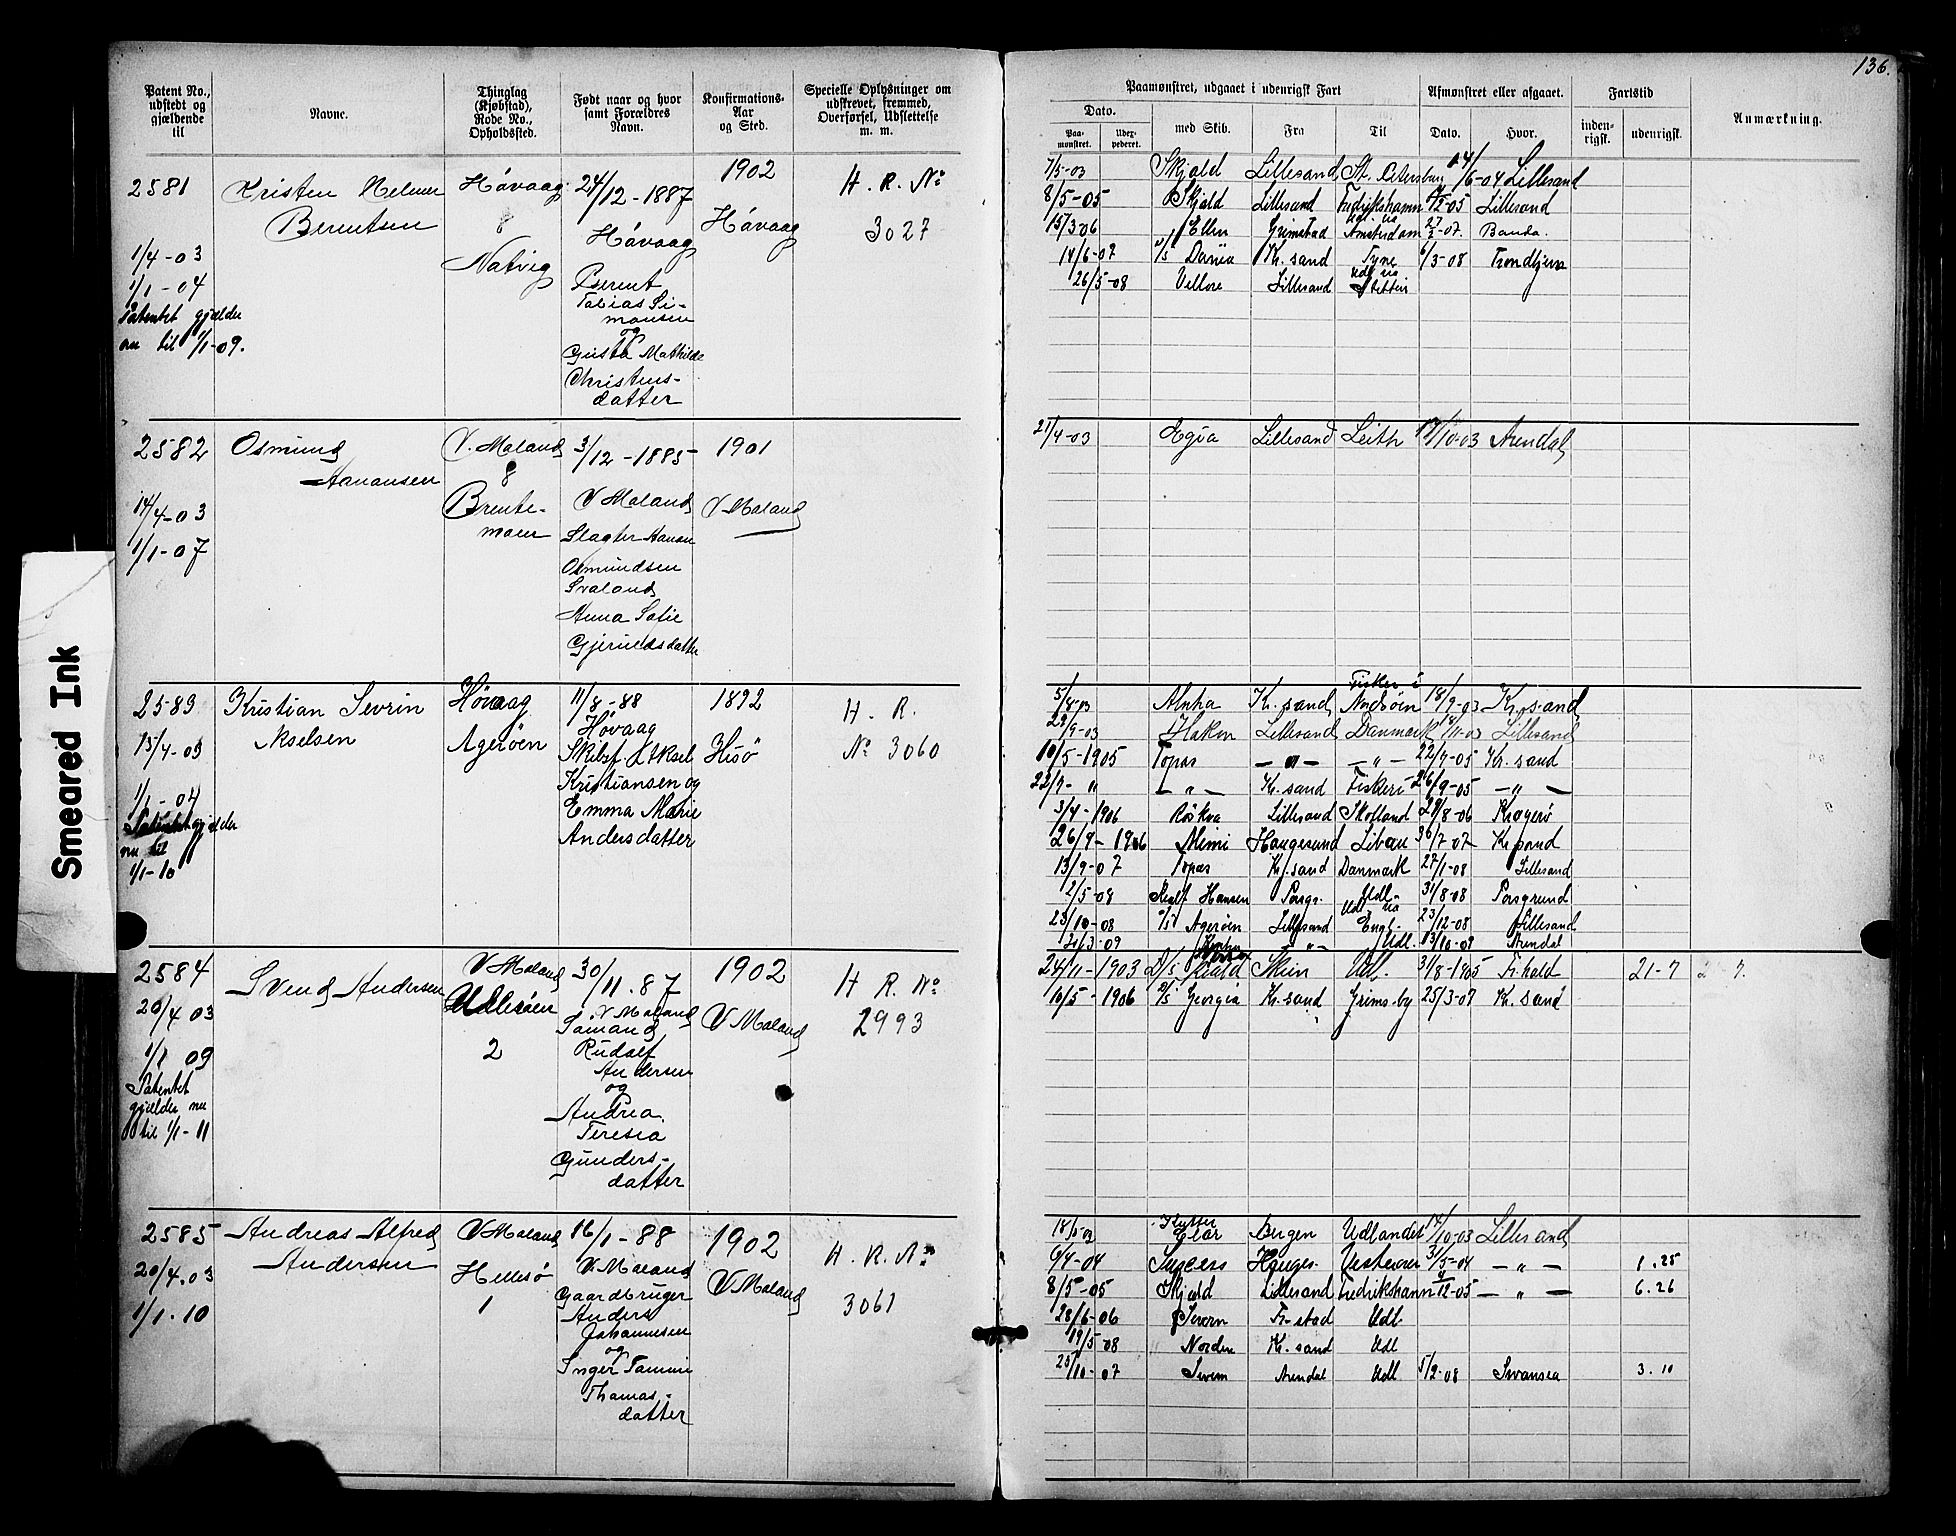 136.
Patent No., udstedt og gjældende til
Navne.
Thinglag (Kjøbstad), Rode No., Opholdssted.
Født naar og hvor samt Forældres Navn.
Konfirmations-Aar og Sted.
Specielle Oplysninger om udskrevet, fremmed, Overførsel, Udslettelse m. m.
Paamønstret, udgaaet i udenrigsk Fart
Afmønstret eller afgaaet.
Fartstid
Anmærkning.
Dato.
Paamønstret.
Udexpederet.
med Skib.
Fra
Til
Dato.
Hvor.
indenrigsk.
udenrigsk.
2581
Kristen Helmer
Berentsen
Høvaag
8
Natvig
24/12-1887
Høvaag
Berent
Tobias Si-
monsen
og
Gusta Mathilde
Christens-
datter
1902
Høvaag
H. R. No
3027
1/4-03
1/1-04
Patentet gjælder
nu til 1/1-09.
7/5-03 Skjold Lillesand St. Petersburg 14/6-04 Lillesand
8/5-05 Skjold Lillesand Fredrikshamn /12-05 Lillesand
15/3 06 Ellen Grimstad Amsterdam 27/2-07. Banda.
14/6-07 Dania Kr. sand Tyne 6/3-08 Trondhjem
26/5-08 Vellore Lillesand Stettin
2582
Osmund
Aanansen
V. Moland
8
Brente-
moen
3/12-1885
V Moland
Slagter Aanan
Osmundsen
Svaland
Anna Sofie
Gjerulds datter
1901
V Moland
14/4-03
1/1-07
21/4-03 Egia Lillesand Leith 17/10-03 Arendal
2583
Kristian Sevrin
Akselsen
Høvaag
Agerøen
11/8-88
Høvaag
Skibsf. Aksel
Kristiansen og
Emma Marie
Anders datter
1892
Hisö
H. R.
No 3060
15/4-03
1/1-04
Patentet gjælder
nu til
1/1-10
5/4-03 Alpha Kr. sand Fisker i Nordsöen 18/9-03 Kr. sand
29/9-03 Hakon Lillesand Danmark 18/11-03 Lillesand
10/5-1905 Topas — " — — " — 22/7-05 Kr. sand
22/7- " — " — Kr. sand Fiskeri 26/9-05 — " —
3/4-1906 Röskva Lillesand Skotland 29/8-06 Kragerø
26/9-1906 Mimi Haugesund Libau 30/7-07 Kr. sand
13/9-07 Topas Kr. sand Danmark 27/1-08 Lillesand
2/5-08 Hansen Porsgr. Udl. 31/8-08 Porsgrund
23/10-08 D/s Agerøen Lillesand Engl. 23/12-08 Lillesand
/3-09 " — Udl. 13/10-09 Arendal
2584
Svend Andersen
V Moland
Udlesøen
2
30/11.87
V Moland
Sämand
Rudolf
Andersen
og
Andrea
Teresia
Gunders-
datter
1902
V Moland
H R. No
2993
20/4 03
1/1 09
Patentet
gjælder nu
til 1/1-11
24/11-1903 D/s Skien Udl. 31/8-1905 Fr.hald 21-7
10/5-1906 D/s Georgia Kr. sand Grimsby 25/3-07 Kr. sand
2585
Andreas Alfred
Andersen
V Moland
Hellesø
1
16/1-88
V. Moland
Gaardbruger
Anders
Johannesen
og
Inger Tamine
Thomas-
datter
1902
V Moland
H. R. No
3061
20/4.03
1/1.10
18/5 03 Kutter Elår Bergen Udlandet 14/10-03 Lillesand
6/4-04 Success Hauges. Vesterøen 31/5-04 — " — 1.25
8/5-05 Skjold Lillesand Fredrikshamn /12-05 — " — 6.26
28/6-06 Severn Fr. stad Udl
19/5-08 Norden Kr. sand Udl
25/10-07 Severn Arendal Udl 5/2-08 Swansea 3.10
Smeared Ink